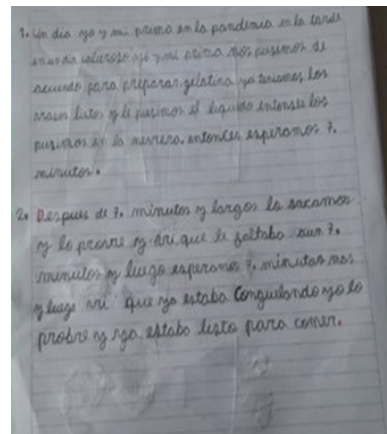 1. Un dia yo y mi prima en la pandemia en la tarde
yo y mi prima nos pusimos de
acuerdo para preparar gelatina ya teniamos los
vasos listos y le pusimos el liquido entonses los
pusimos en la nevera. entonces esperamos 7.
minutos.
2. Despues de 7. minutos y largos la sacamos
y lo provre y dri que le faltaba aun 7.
minutos y luego esperamos 7. minutos mas
y luego que ya estaba Conguelando yo lo
probre y ya estaba listo para comer.